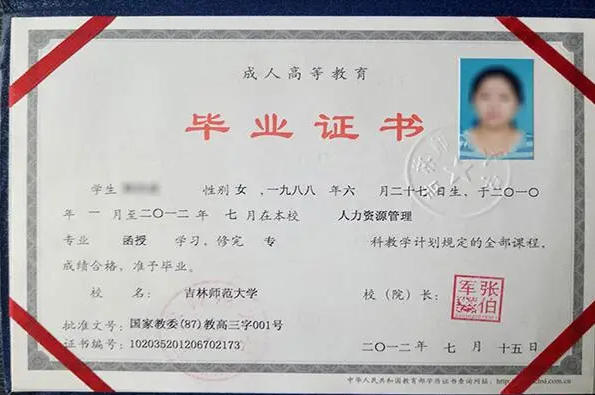 成人高等教育
毕业证书
学生 性别 女 ,一九八八 年 六 月二十七日生、于二〇一〇
年 一 月至二〇一二年 七 月在本校 人力资源管理
专业 函授 学习,修完 专 科教学计划规定的全部课程,
成绩合格,准予毕业。
校 名: 吉林师范大学 校(院)长: 张伯军
批准文号: 国家教委(87)教高三字001号
证书编号: 102035201206702173 二〇一二年 七 月 十五日
中华人民共和国教育部学历证书查询网址: